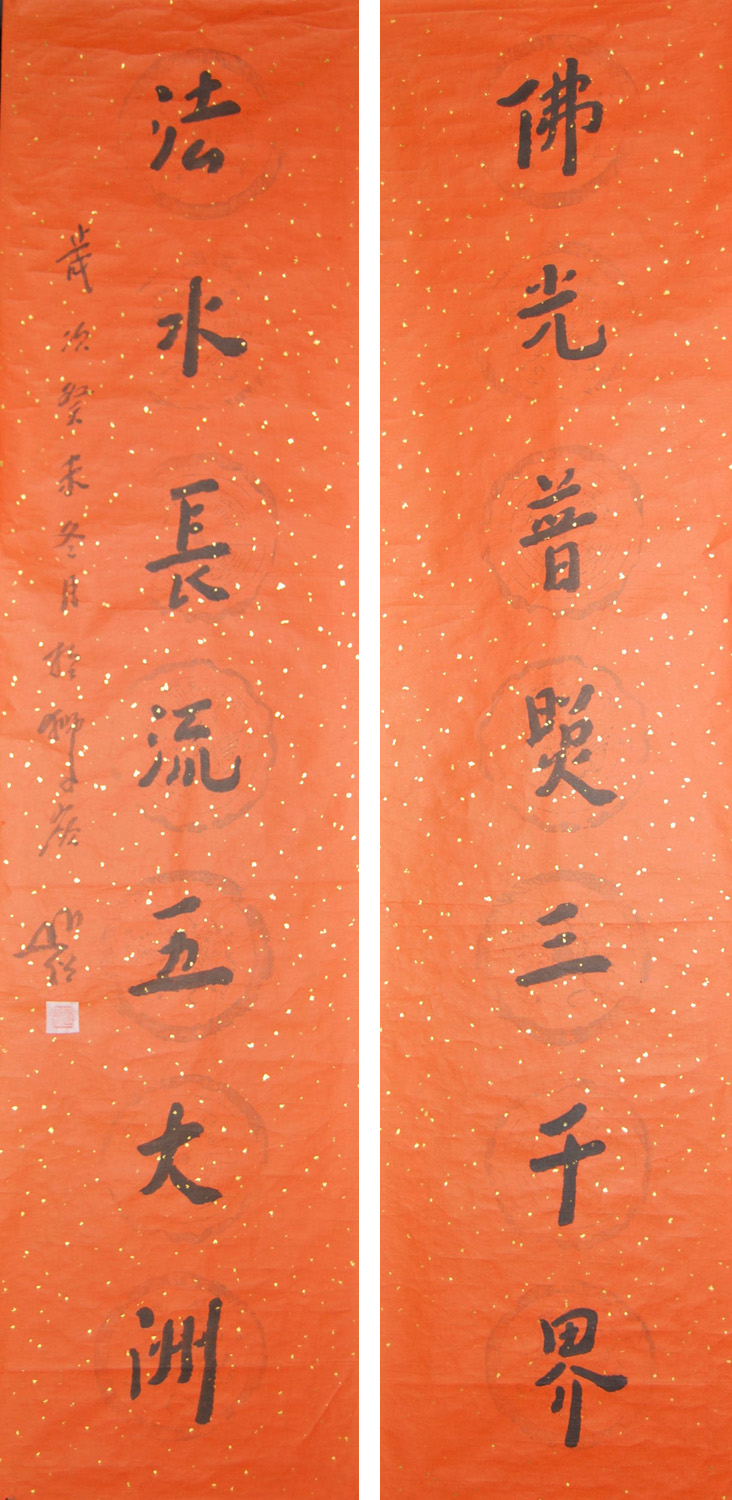 佛光普照三千界
法水長流五大洲
歲次癸未冬月於獅子座